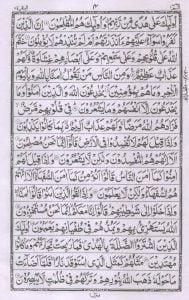 البقرة ٢ ٤ الٓمّٓ ١
اُولٰٓئِكَ عَلٰى هُدًى مِّنْ رَّبِّهِمْ وَاُولٰٓئِكَ هُمُ الْمُفْلِحُوْنَ اِنَّ الَّذِيْنَ
كَفَرُوْا سَوَآءٌ عَلَيْهِمْ ءَاَنْذَرْتَهُمْ اَمْ لَمْ تُنْذِرْهُمْ لَا يُؤْمِنُوْنَ خَتَمَ
اللّٰهُ عَلٰى قُلُوْبِهِمْ وَعَلٰى سَمْعِهِمْ وَعَلٰٓى اَبْصَارِهِمْ غِشَاوَةٌ وَّلَهُمْ
عَذَابٌ عَظِيْمٌ وَمِنَ النَّاسِ مَنْ يَّقُوْلُ اٰمَنَّا بِاللّٰهِ وَبِالْيَوْمِ
الْاٰخِرِ وَمَا هُمْ بِمُؤْمِنِيْنَ يُخٰدِعُوْنَ اللّٰهَ وَالَّذِيْنَ اٰمَنُوْا وَمَا
يَخْدَعُوْنَ اِلَّآ اَنْفُسَهُمْ وَمَا يَشْعُرُوْنَ فِيْ قُلُوْبِهِمْ مَّرَضٌ
فَزَادَهُمُ اللّٰهُ مَرَضًا وَلَهُمْ عَذَابٌ اَلِيْمٌ بِمَا كَانُوْا يَكْذِبُوْنَ
وَاِذَا قِيْلَ لَهُمْ لَا تُفْسِدُوْا فِي الْاَرْضِ قَالُوْٓا اِنَّمَا نَحْنُ مُصْلِحُوْنَ
اَلَآ اِنَّهُمْ هُمُ الْمُفْسِدُوْنَ وَلٰكِنْ لَّا يَشْعُرُوْنَ وَاِذَا قِيْلَ لَهُمْ
اٰمِنُوْا كَمَآ اٰمَنَ النَّاسُ قَالُوْٓا اَنُؤْمِنُ كَمَآ اٰمَنَ السُّفَهَآءُ اَلَآ اِنَّهُمْ
هُمُ السُّفَهَآءُ وَلٰكِنْ لَّا يَعْلَمُوْنَ وَاِذَا لَقُوا الَّذِيْنَ اٰمَنُوْا قَالُوْٓا اٰمَنَّا
وَاِذَا خَلَوْا اِلٰى شَيٰطِيْنِهِمْ قَالُوْٓا اِنَّا مَعَكُمْ اِنَّمَا نَحْنُ مُسْتَهْزِءُوْنَ
اَللّٰهُ يَسْتَهْزِئُ بِهِمْ وَيَمُدُّهُمْ فِيْ طُغْيَانِهِمْ يَعْمَهُوْنَ اُولٰٓئِكَ
الَّذِيْنَ اشْتَرَوُا الضَّلٰلَةَ بِالْهُدٰى فَمَا رَبِحَتْ تِّجَارَتُهُمْ وَمَا كَانُوْا
مُهْتَدِيْنَ مَثَلُهُمْ كَمَثَلِ الَّذِي اسْتَوْقَدَ نَارًا فَلَمَّآ اَضَآءَتْ
مَا حَوْلَهٗ ذَهَبَ اللّٰهُ بِنُوْرِهِمْ وَتَرَكَهُمْ فِيْ ظُلُمٰتٍ لَّا يُبْصِرُوْنَ